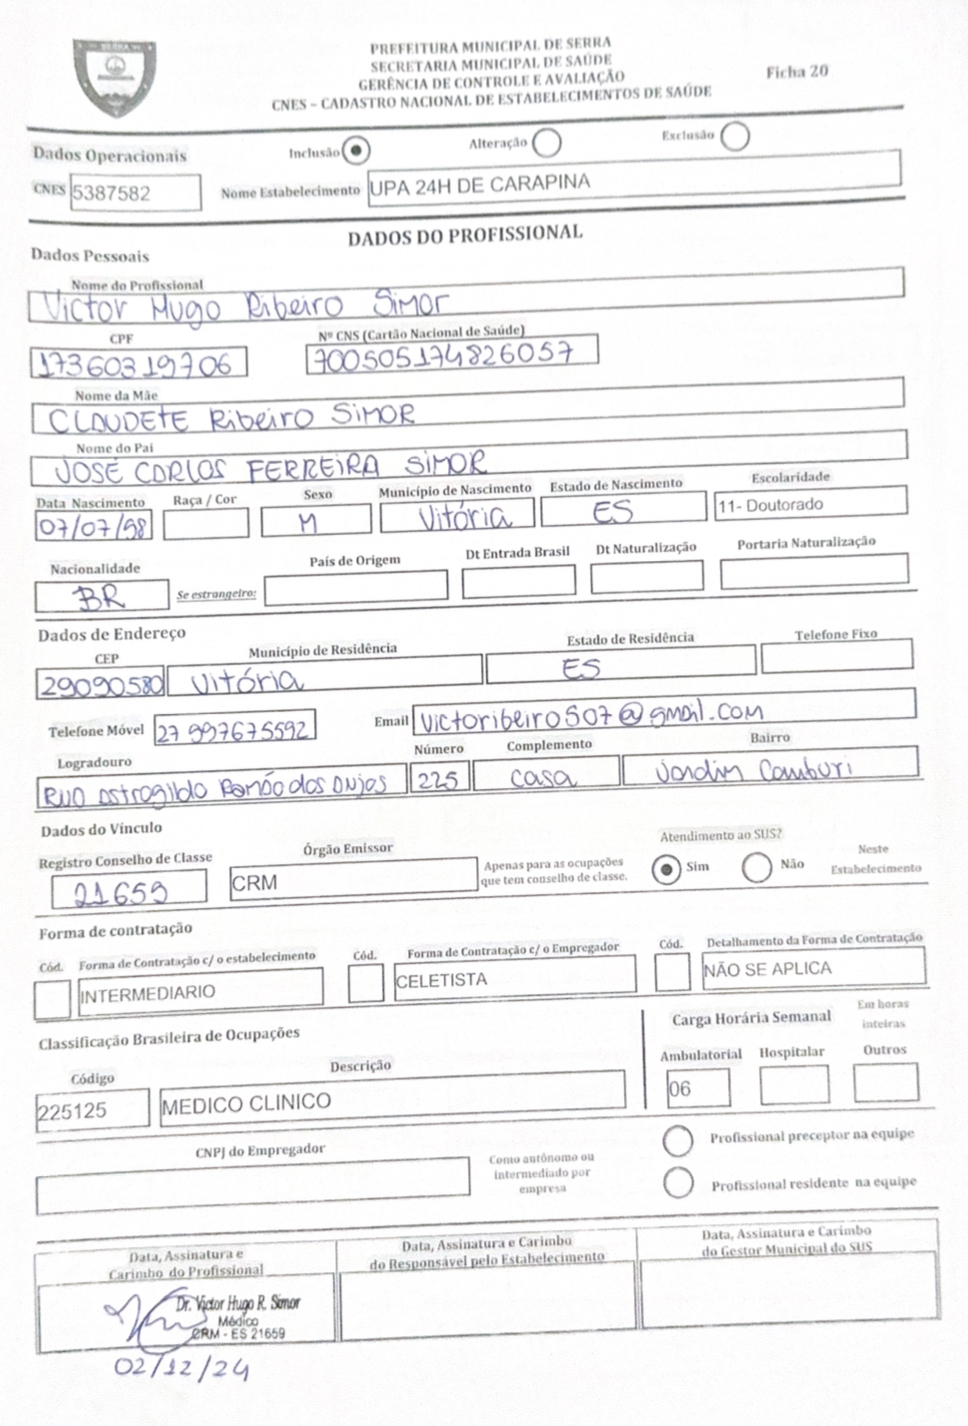 PREFEITURA MUNICIPAL DE SERRA
SECRETARIA MUNICIPAL DE SAÚDE
GERÊNCIA DE CONTROLE E AVALIAÇÃO
CNES – CADASTRO NACIONAL DE ESTABELECIMENTOS DE SAÚDE
Ficha 20
Dados Operacionais Inclusão Alteração Exclusão
CNES 5387582 Nome Estabelecimento UPA 24H DE CARAPINA
DADOS DO PROFISSIONAL
Dados Pessoais
Nome do Profissional
Victor Hugo Ribeiro Simor
CPF Nº CNS (Cartão Nacional de Saúde)
17360319706 700505174826057
Nome da Mãe
CLAUDETE Ribeiro SIMOR
Nome do Pai
JOSÉ CARLOS FERREIRA SIMOR
Data Nascimento Raça / Cor Sexo Município de Nascimento Estado de Nascimento Escolaridade
07/07/98 M Vitória ES 11- Doutorado
Nacionalidade País de Origem Dt Entrada Brasil Dt Naturalização Portaria Naturalização
BR Se estrangeiro:
Dados de Endereço
CEP Município de Residência Estado de Residência Telefone Fixo
29090580 Vitória ES
Telefone Móvel 27 997675592 Email victoribeiro507@gmail.com
Logradouro Número Complemento Bairro
Rua Astrogildo Romão dos Anjos 225 casa Jardim Camburi
Dados do Vínculo
Registro Conselho de Classe Órgão Emissor Atendimento ao SUS?
21659 CRM Apenas para as ocupações que tem conselho de classe. Sim Não Neste Estabelecimento
Forma de contratação
Cód. Forma de Contratação c/ o estabelecimento Cód. Forma de Contratação c/ o Empregador Cód. Detalhamento da Forma de Contratação
INTERMEDIARIO CELETISTA NÃO SE APLICA
Classificação Brasileira de Ocupações Carga Horária Semanal Em horas inteiras
Código Descrição Ambulatorial Hospitalar Outros
225125 MEDICO CLINICO 06
CNPJ do Empregador Como autônomo ou intermediado por empresa
Profissional preceptor na equipe
Profissional residente na equipe
Data, Assinatura e Carimbo do Profissional
Data, Assinatura e Carimbo do Responsável pelo Estabelecimento
Data, Assinatura e Carimbo do Gestor Municipal do SUS
Dr. Victor Hugo R. Simor
Médico
CRM - ES 21659
02/12/24